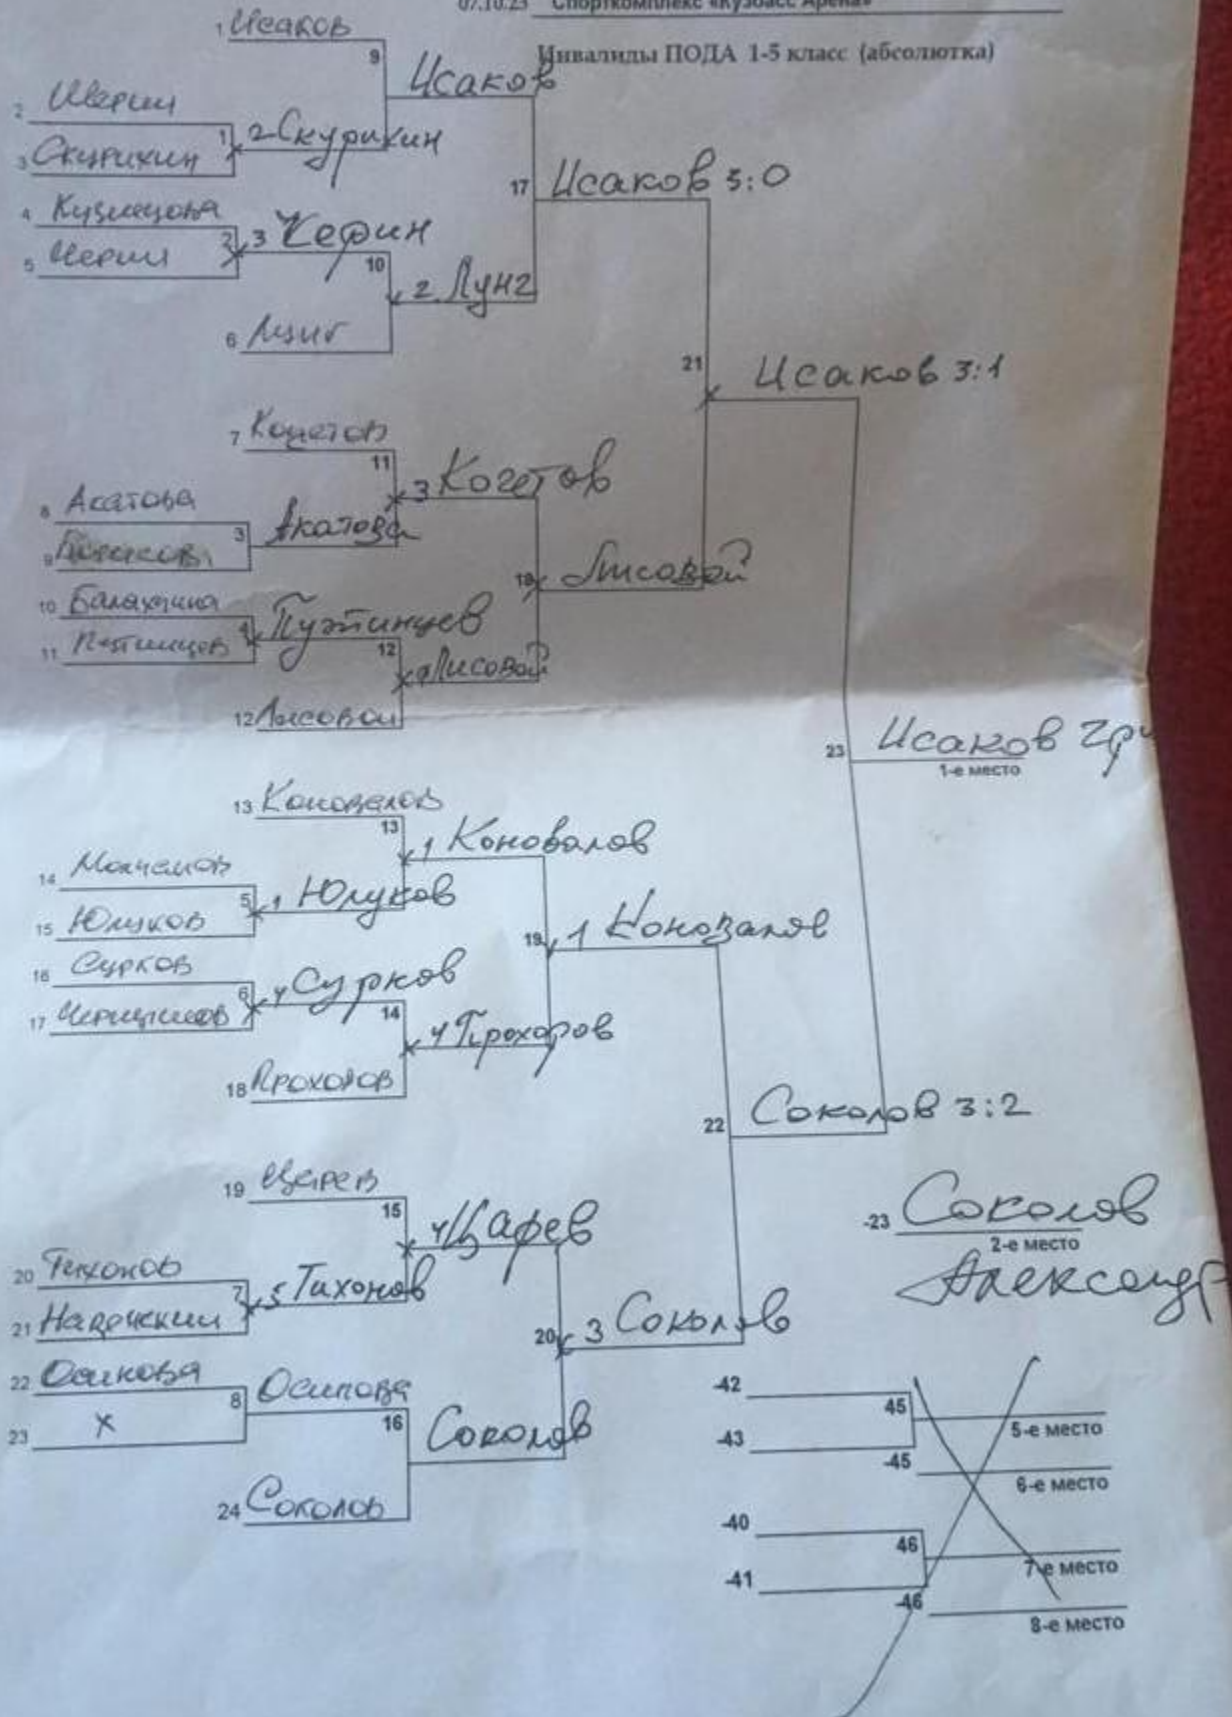 07.10.23 Спорткомплекс «Кузбасс Арена»
Инвалиды ПОДА 1-5 класс (абсолютка)
1 Исаков
9
Исаков
2
3 Скурихин
1
2 Скурихин
17
Исаков 3:0
4 Кузнецова
5
2
3
10
2 Лунг
6
21
Исаков 3:1
7 Кочетов
11
3 Кочетов
8 Акатова
9
3
Акатова
18
Лисовой
10 Балахнина
11
4
12
Лисовой
12 Лисовой
23
Исаков
1-е место
13 Коновалов
13
1 Коновалов
14
15 Юлуков
5
1 Юлуков
19
1 Коновалов
16 Сурков
17
6
4 Сурков
14
4 Прохоров
18 Прохоров
22
Соколов 3:2
19 Царев
15
4 Царев
20 Тихонов
21
7
5 Тихонов
20
3 Соколов
22 Осипова
23 х
8
Осипова
16
Соколов
24 Соколов
-23 Соколов
2-е место
Александр
-42
45
5-е место
-43
-45
6-е место
-40
46
7-е место
-41
-46
8-е место